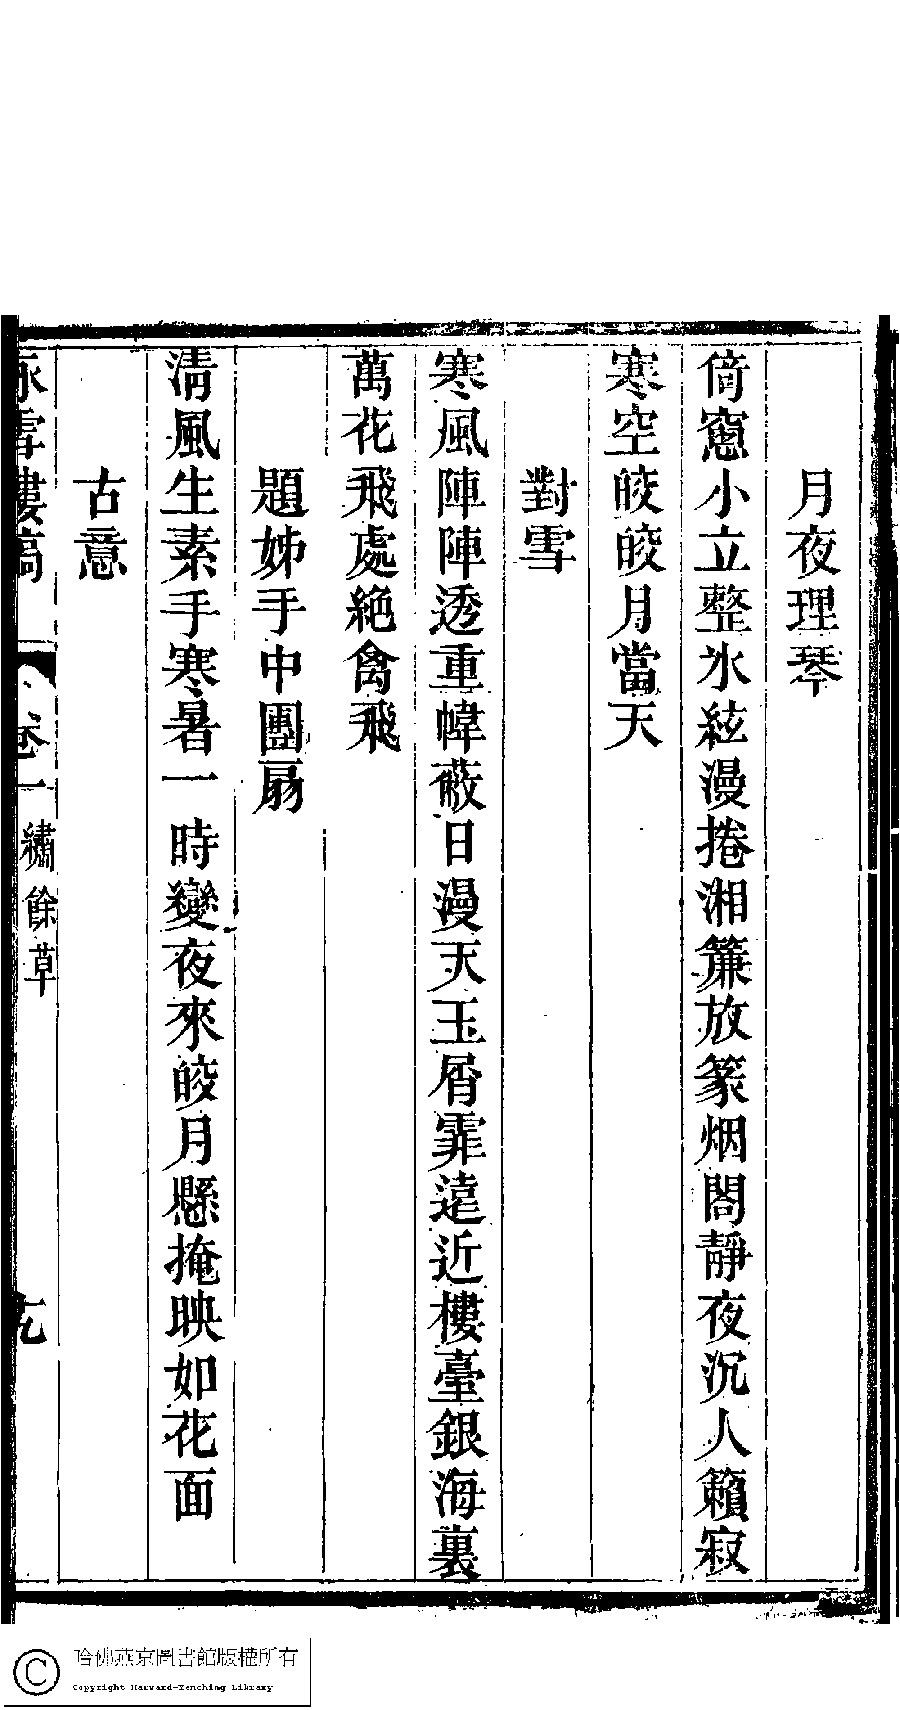 月夜理琴
倚窻小立整氷絃漫捲湘簾放篆烟閤靜夜沉人籟寂
寒空皎皎月當天
對雪
寒風陣陣透重幃蔽日漫天玉屑霏遠近樓臺銀海裏
萬花飛處絶禽飛
題姊手中團扇
清風生素手寒暑一時變夜來皎月懸掩映如花面
古意
詠雪樓稿 卷一 繡餘草
哈佛燕京圖書館版權所有
Copyright Harvard-Yenching Library